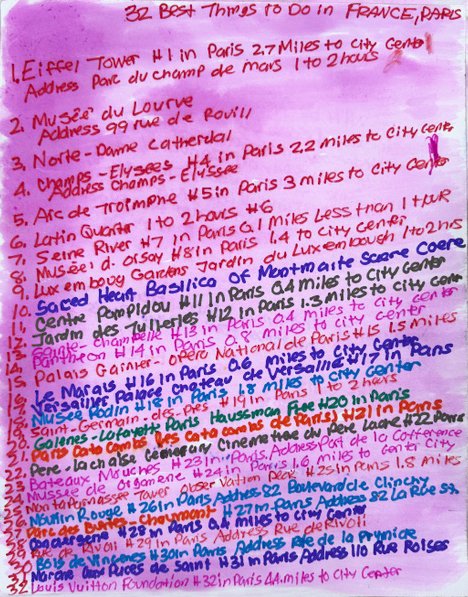 32 Best Things to Do in FRANCE, PARIS
1. Eiffel Tower #1 in Paris 2.7 Miles to City Center
Address Parc du champ de mars 1 to 2 hours
2. Museé du Lourve
Address 99 rue de Rovill
3. Norte-Dame Catherdal
4. Champs-Elysees #4 in Paris 2.2 miles to City Center
Address Champs-Elyssee
5. Arc de Troimphe #5 in Paris 3 miles to City Center
6. Latin Quarter 1 to 2 hours #6
7. Seine River #7 in Paris 0.1 Miles Less than 1 Hour
8. Museé d'orsay #8 in Paris 1.4 to City Center
9. Luxemboug Gardens Jardin du Luxembough 1 to 2 hrs
10. Sacred Heart Basilica Of Montmarte Scarre Coere
11. Centre Pompidou #11 in Paris 0.4 miles to City Center
12. Jardin des Tulleries #12 in Paris 1.3 miles to City Center
13. Sainte-Chappelle #13 in Paris 0.4 miles to city center
14. Pantheon #14 in Paris 0.8 miles to city center
15. Palais Garnier-Opera National de Paris #15 1.5 miles
16. Le Marais #16 in Paris 0.6 miles to City Center
17. Versailles Palace Chateau de Versailles #17 in Paris
18. Musee Rodin #18 in Paris 1.8 miles to city center
19. Saint-Germain-des-Pres #19 in Paris 1 to 2 hours
20. Galeries-Lafayette Paris Haussman #20 in Paris
21. Paris Catacombs (les catacombs de Paris) #21 in Paris
22. Pere-lachaise Cemetary Cimenetime du Pere Lache #22 Paris
23. Bateaux Mouches #23 in Paris Address Port de la Confrence
24. Mussee de Orgamene #24 in Paris 1.6 miles to center City
25. Montparnassee Tower Observation Deck #25 in Paris 1.8 miles
26. Moulin Rouge #26 in Paris Address 82 Boulevard de Clinchy
27. Parc des Buttes-Chaumont #27 in Paris Address 82 La Rue
28. #28 in Paris 0.4 miles to City Center
29. Rue de Rivoli #29 in Paris Address Rue de Rivoli
30. Bois de Vincenes #30 in Paris Address Rte de la Prymide
31. Marche aux Puces de Saint #31 in Paris Address 110 Rue Roises
32. Louis Vuitton Foundation #32 in Paris 4.4 miles to City Center